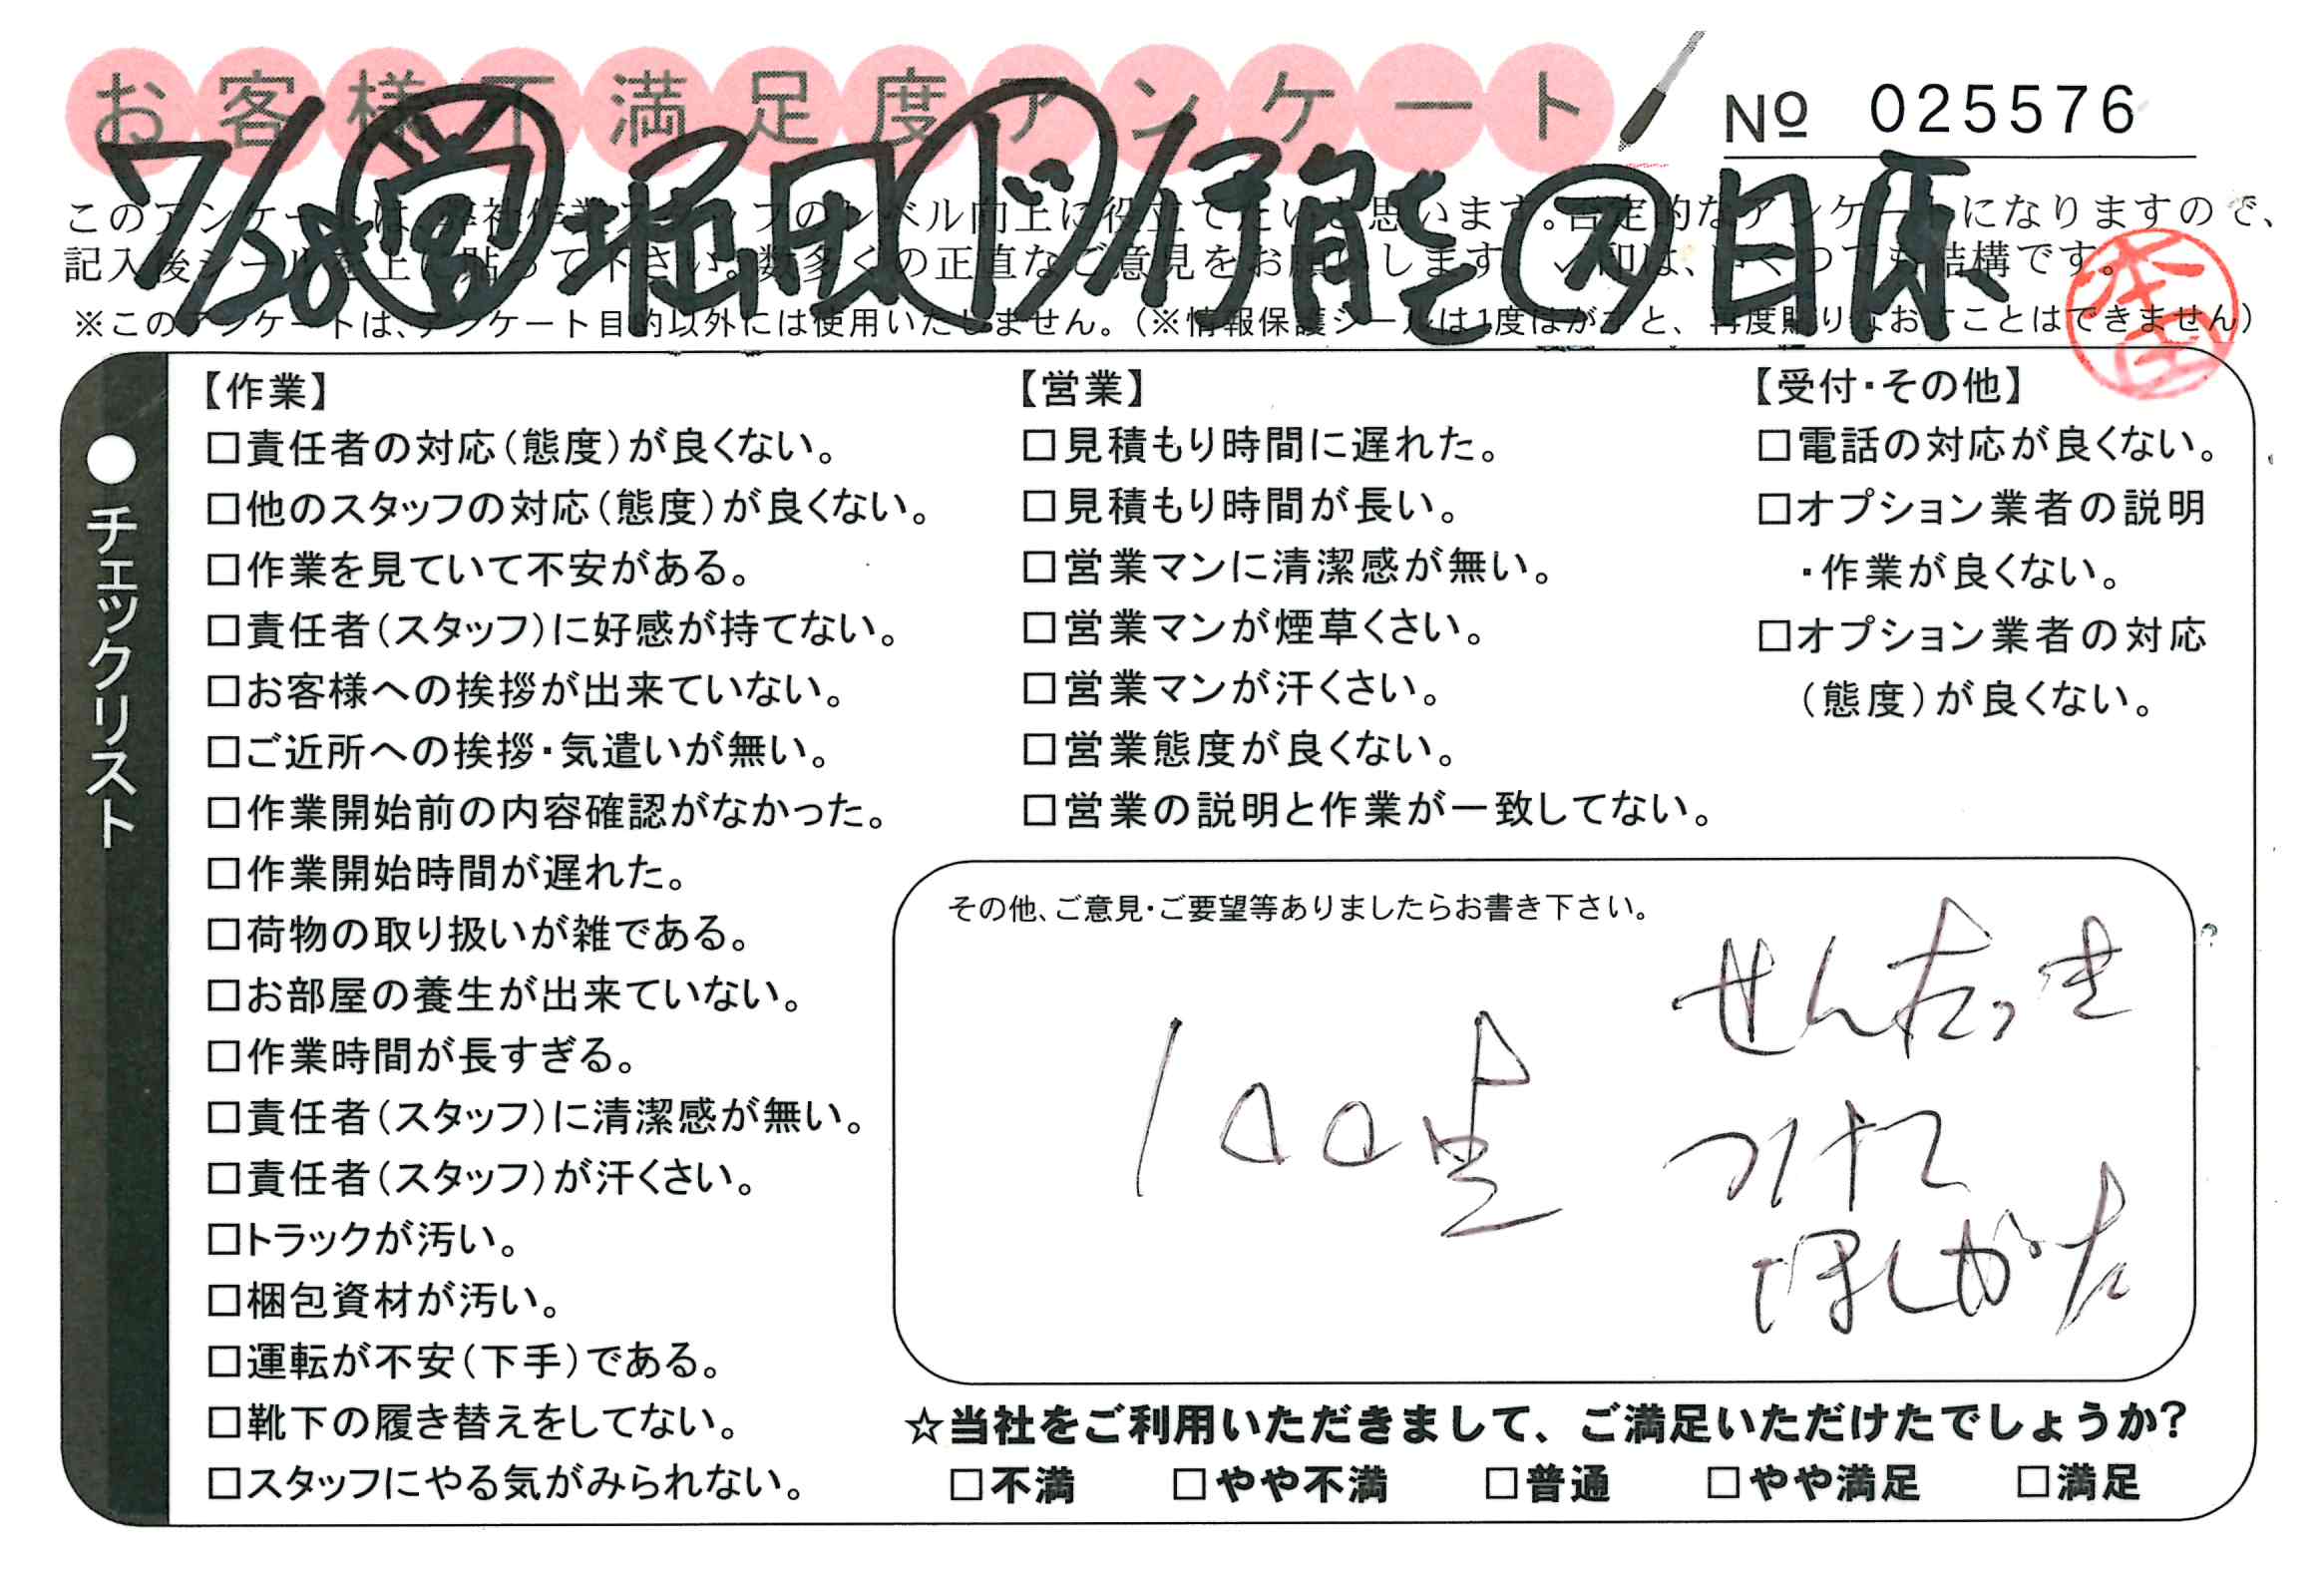 お客様不満足度アンケート
№ 025576
7/28 営 堀田 ド 伊能 ス 日原
このアンケートは、弊社作業スタッフのレベル向上に役立てたいと思います。否定的なアンケートになりますので、
記入後シールを上に貼って下さい。数多くの正直なご意見をお願いします。✓印は、いくつでも結構です。
※このアンケートは、アンケート目的以外には使用いたしません。(※情報保護シールは1度はがすと、再度貼りなおすことはできません)
本田
●チェックリスト
【作業】
□責任者の対応(態度)が良くない。
□他のスタッフの対応(態度)が良くない。
□作業を見ていて不安がある。
□責任者(スタッフ)に好感が持てない。
□お客様への挨拶が出来ていない。
□ご近所への挨拶・気遣いが無い。
□作業開始前の内容確認がなかった。
□作業開始時間が遅れた。
□荷物の取り扱いが雑である。
□お部屋の養生が出来ていない。
□作業時間が長すぎる。
□責任者(スタッフ)に清潔感が無い。
□責任者(スタッフ)が汗くさい。
□トラックが汚い。
□梱包資材が汚い。
□運転が不安(下手)である。
□靴下の履き替えをしてない。
□スタッフにやる気がみられない。
【営業】
□見積もり時間に遅れた。
□見積もり時間が長い。
□営業マンに清潔感が無い。
□営業マンが煙草くさい。
□営業マンが汗くさい。
□営業態度が良くない。
□営業の説明と作業が一致してない。
【受付・その他】
□電話の対応が良くない。
□オプション業者の説明
・作業が良くない。
□オプション業者の対応
(態度)が良くない。
その他、ご意見・ご要望等ありましたらお書き下さい。
100点
せんたっき
つけて
ほしかた
☆当社をご利用いただきまして、ご満足いただけたでしょうか?
□不満 □やや不満 □普通 □やや満足 □満足